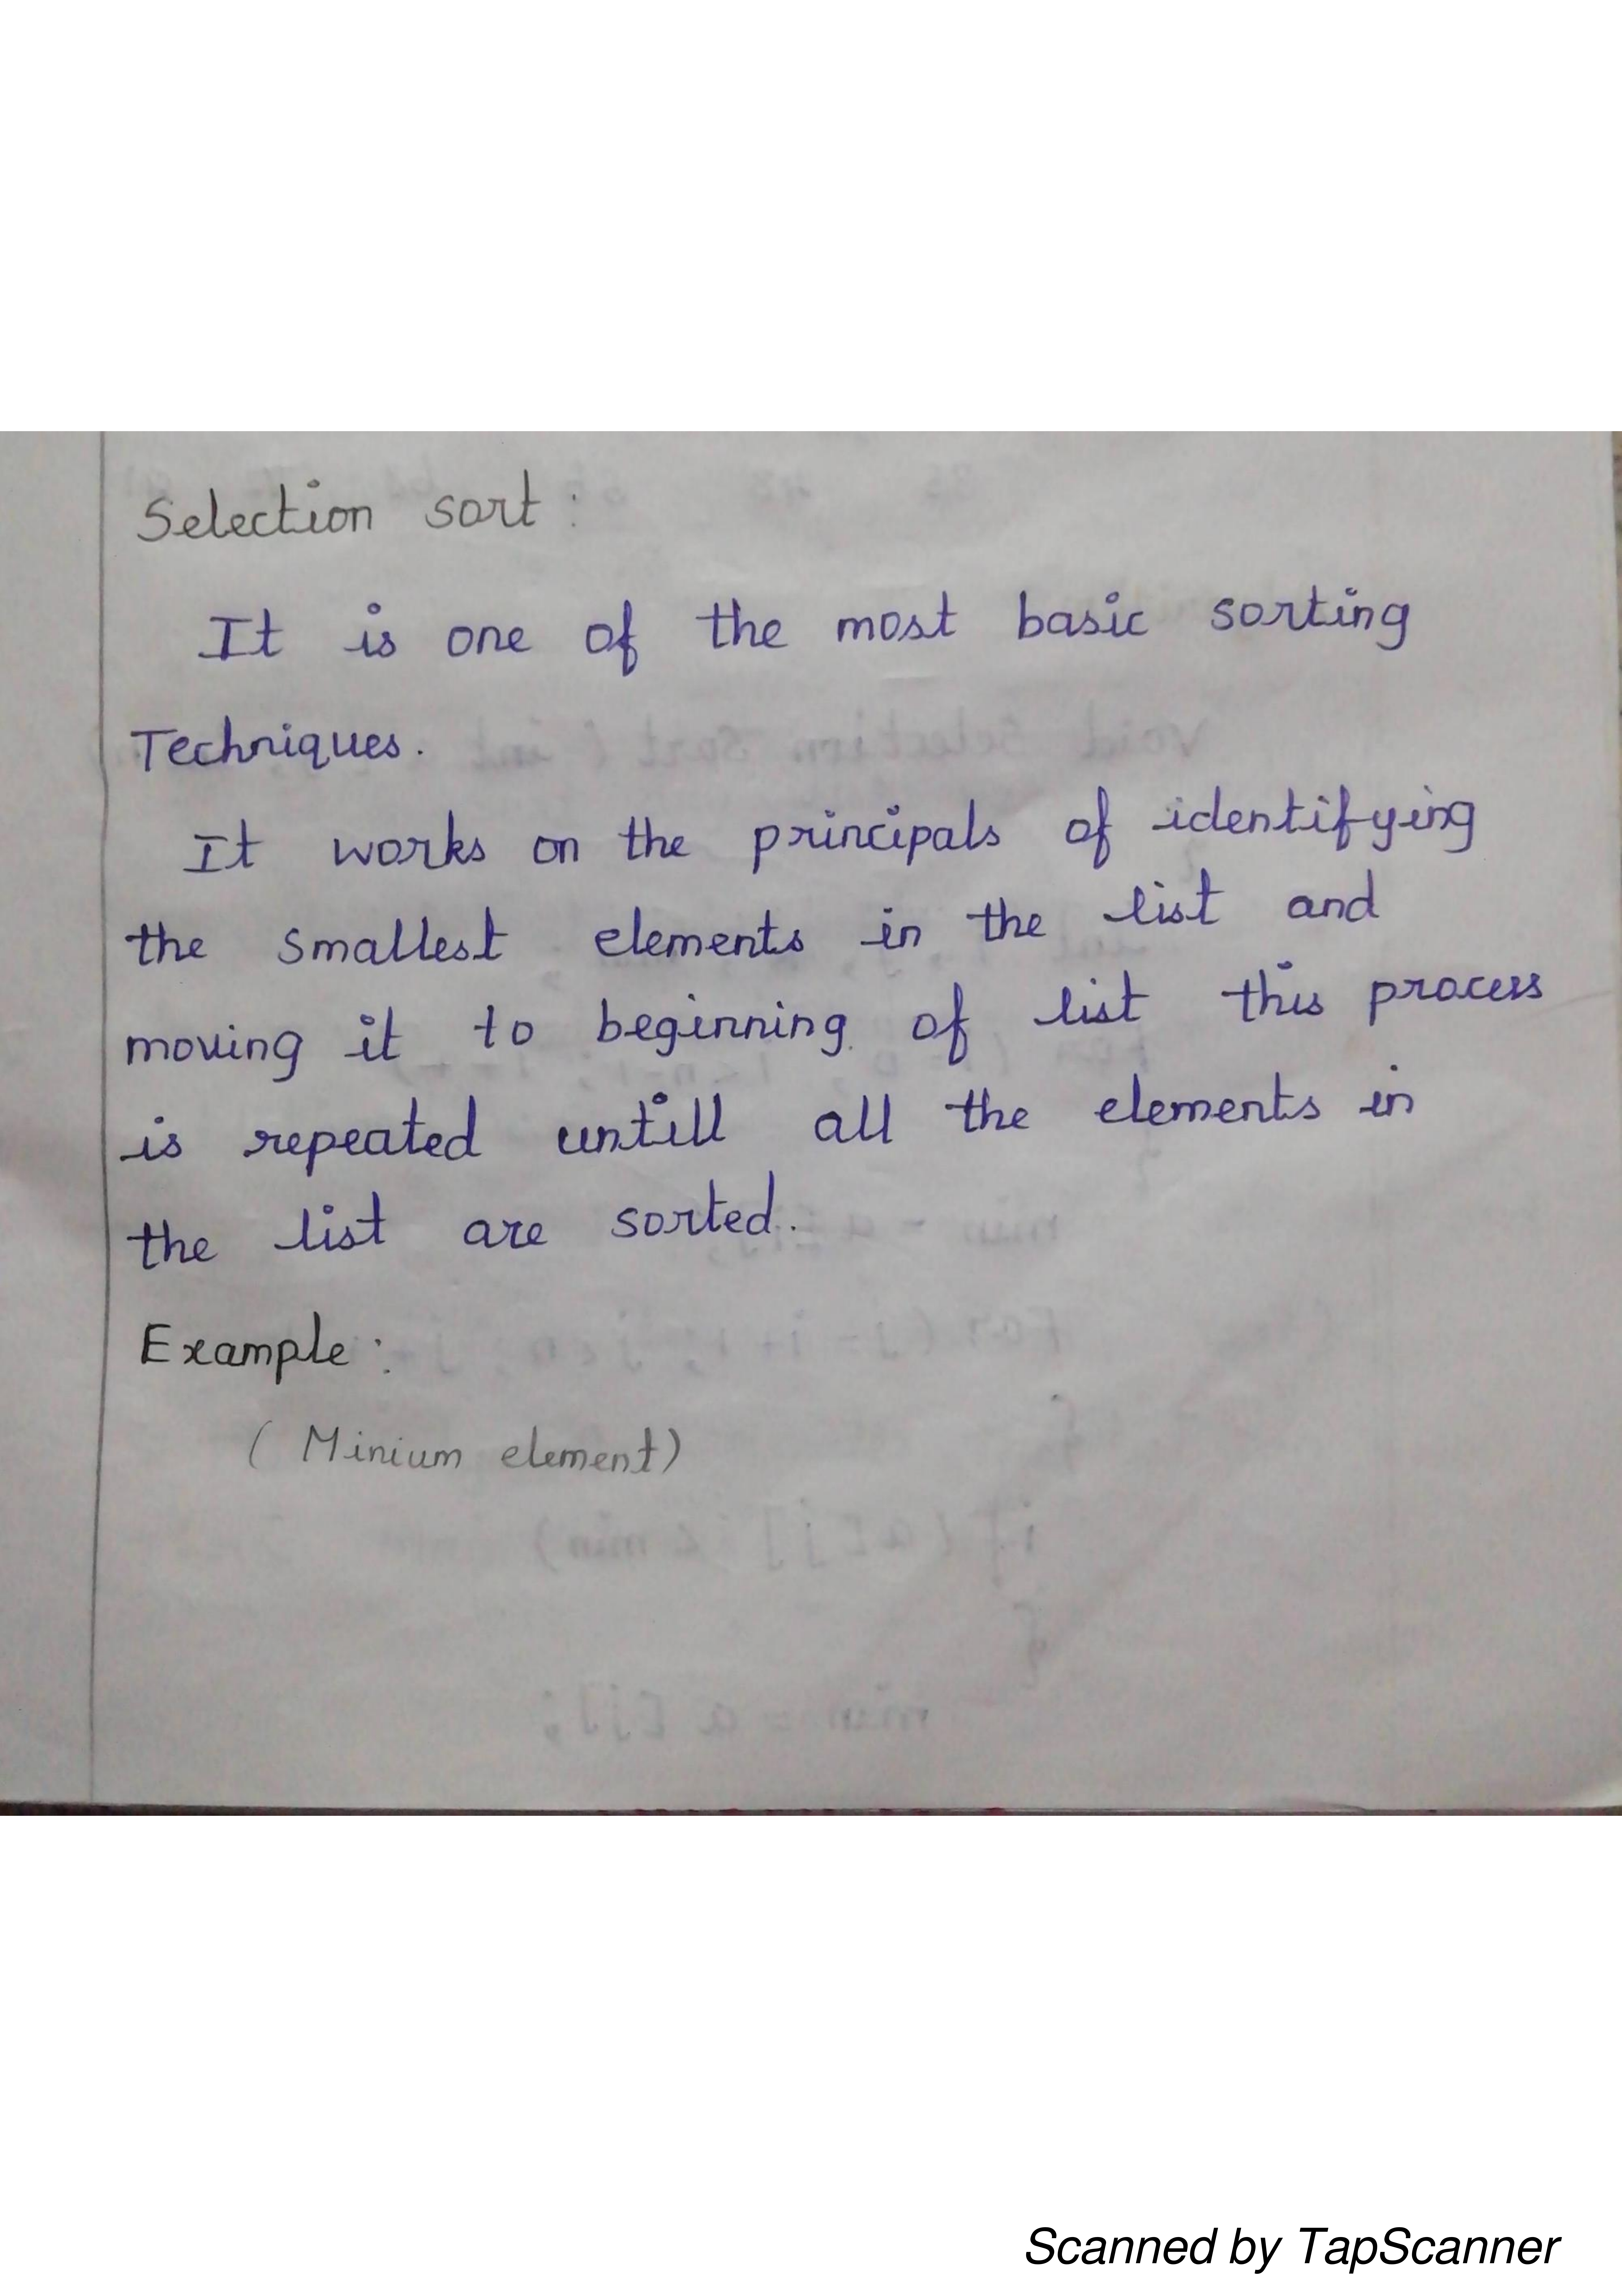 Selection sort :
It is one of the most basic sorting
Techniques.
It works on the principals of identifying
the smallest elements in the list and
moving it to beginning of list this process
is repeated untill all the elements in
the list are sorted.
Example :
( Minium element)
Scanned by TapScanner